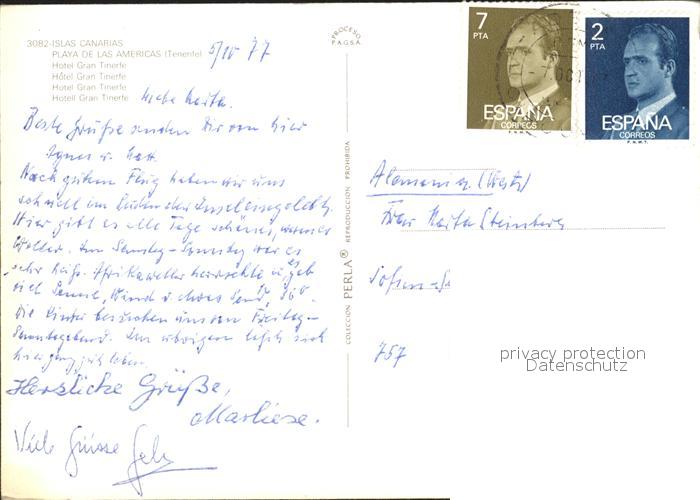 3082-ISLAS CANARIAS
PLAYA DE LAS AMERICAS (Tenerife)
Hotel Gran Tinerfe
Hôtel Gran Tinerfe
Hotel Gran Tinerfe
Hotell Gran Tinerfe
5/10 77
Liebe Marta.
Beste Grüsse senden Dir von hier
Agnes u.
Nach gutem Flug haben wir uns
schnell im Süden der Insel eingelebt.
Hier gibt es alle Tage schönes, warmes
Wetter. Am Samstag-Sonntag war es
sehr heiss. Afrikawetter herrschte u. es gab
viel Sonne, Wind u. etwas Sand, 36°.
Die Kinder besuchen uns von Freitag-
Sonntagabend. Im übrigen lässt sich
hier ganz gut leben.
Herzliche Grüße,
Marliese.
Viele Grüsse
PROCESO
P.A.G.S.A.
COLECCION PERLA® REPRODUCCION PROHIBIDA
7
PTA
ESPAÑA
CORREOS
F.N.M.T.
2
PTA
ESPAÑA
CORREOS
F.N.M.T.
Alemania (West)
Frau Marta Steinberg
757
privacy protection
Datenschutz